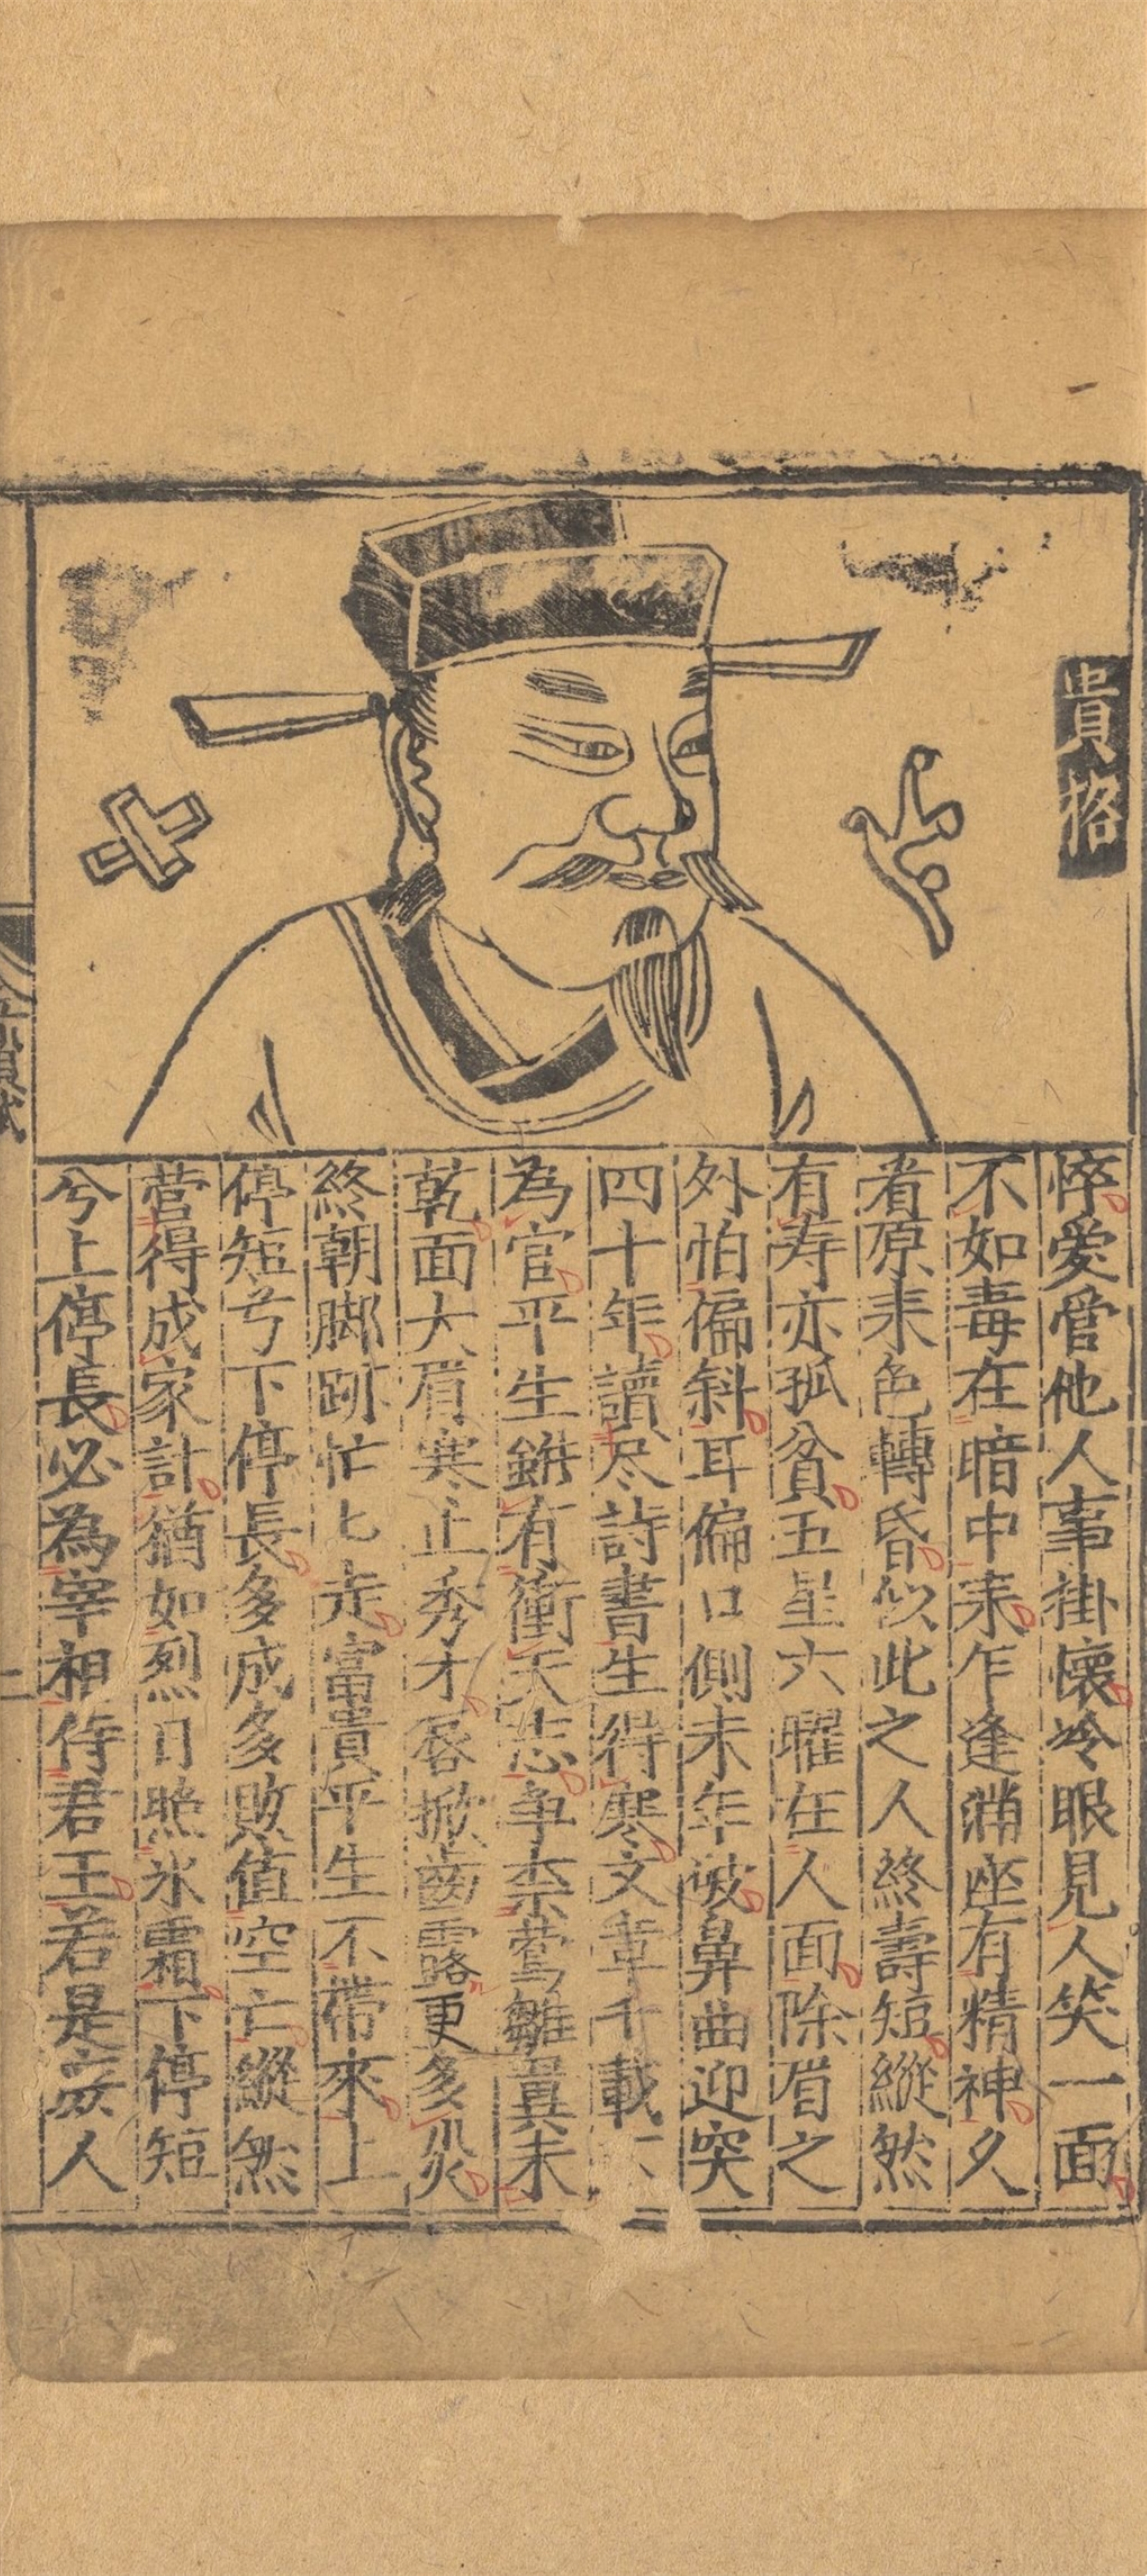 貴格
悴愛管他人事掛懷冷眼見人笑一面
不如毒在暗中耒乍逢滿座有精神久
看原耒色轉昏似此之人終壽短縱然
有寿亦孤貧五星六曜在人面除眉之
外怕偏斜耳偏口側末年破鼻曲迎突
四十年讀尽詩書生得寒文章千載
為官平生雖有衝天志争柰鶯雛翼未
乾面大眉寒止秀才唇掀齒露更多災
終朝脚跡忙匕走富貴平生不帶來上
停短兮下停長多成多敗值空亡縱然
营得成家計猶如烈日照氷霜下停短
兮上停長必為宰相侍君王若是庶人